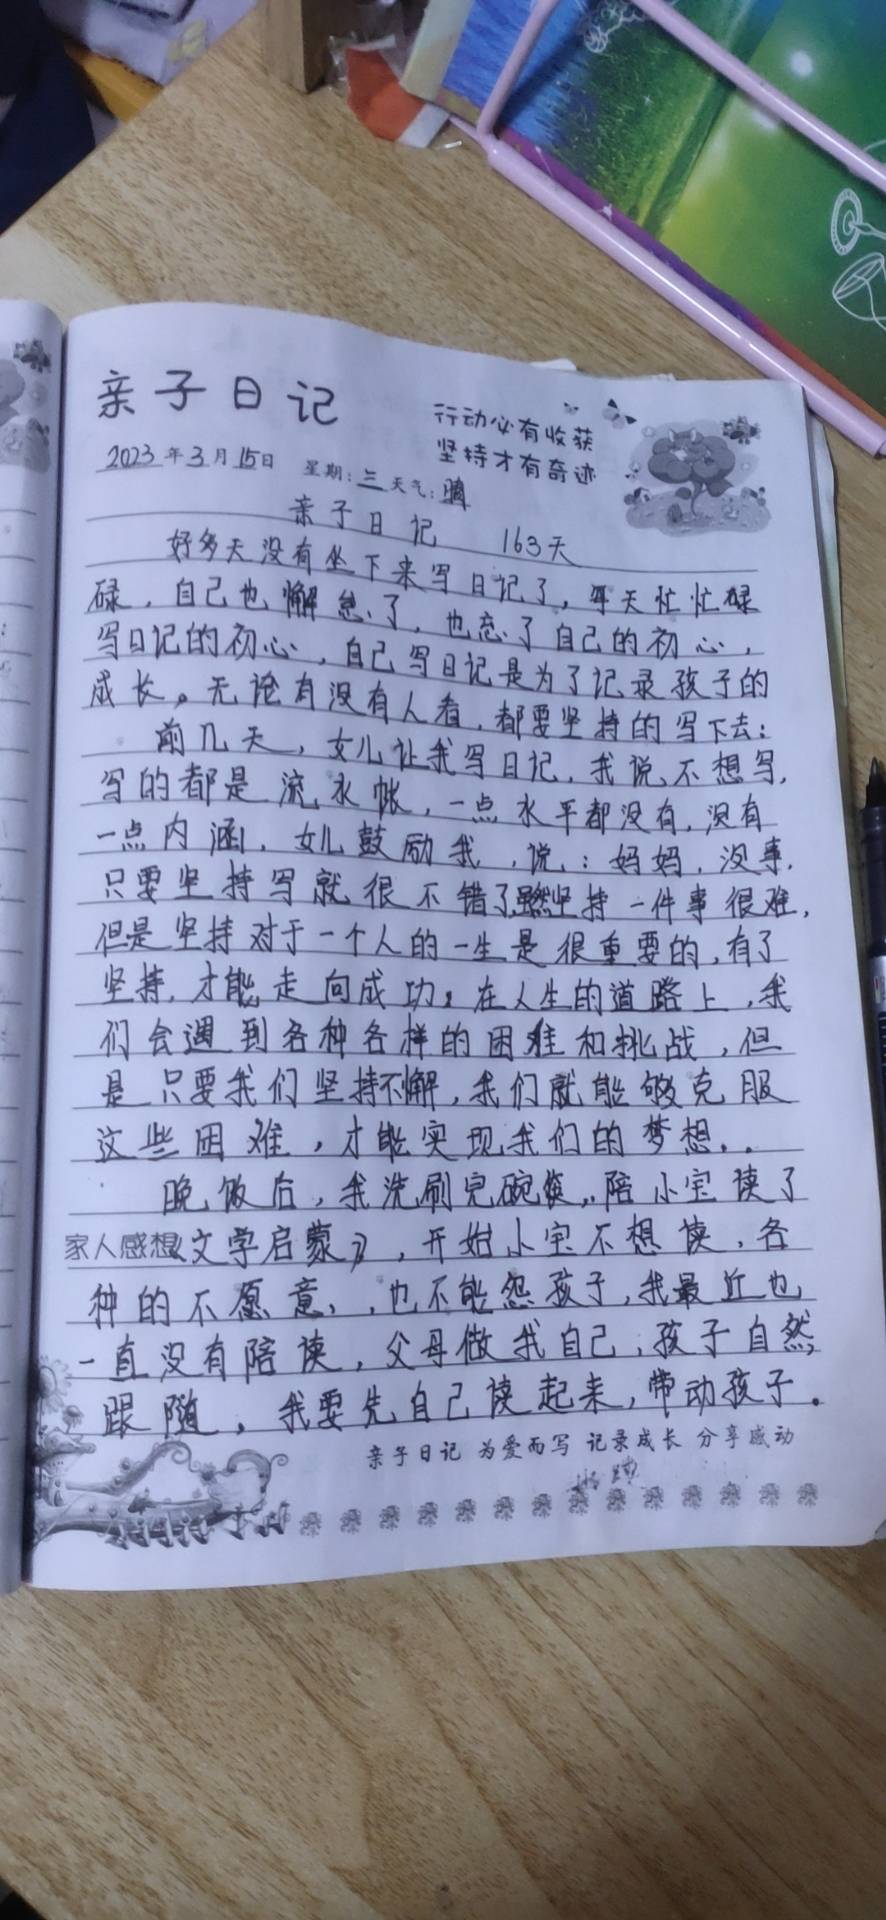 亲子日记
行动必有收获
坚持才有奇迹
2023年3月15日 星期:三 天气:晴
亲子日记 163天
好多天没有坐下来写日记了,每天忙忙碌
碌,自己也懈怠了,也忘了自己的初心,
写日记的初心,自己写日记是为了记录孩子的
成长。无论有没有人看,都要坚持的写下去;
前几天,女儿让我写日记,我说不想写,
写的都是流水帐,一点水平都没有,没有
一点内涵,女儿鼓励我,说:妈妈,没事,
只要坚持写就很不错了,虽然坚持一件事很难,
但是坚持对于一个人的一生是很重要的,有了
坚持,才能走向成功。在人生的道路上,我
们会遇到各种各样的困难和挑战,但
是只要我们坚持不懈,我们就能够克服
这些困难,才能实现我们的梦想。
晚饭后,我洗刷完碗筷,陪小宝读了
家人感想《文学启蒙》,开始小宝不想读,各
种的不愿意,也不能怨孩子,我最近也
一直没有陪读,父母做我自己,孩子自然,
跟随,我要先自己读起来,带动孩子。
亲子日记 为爱而写 记录成长 分享感动